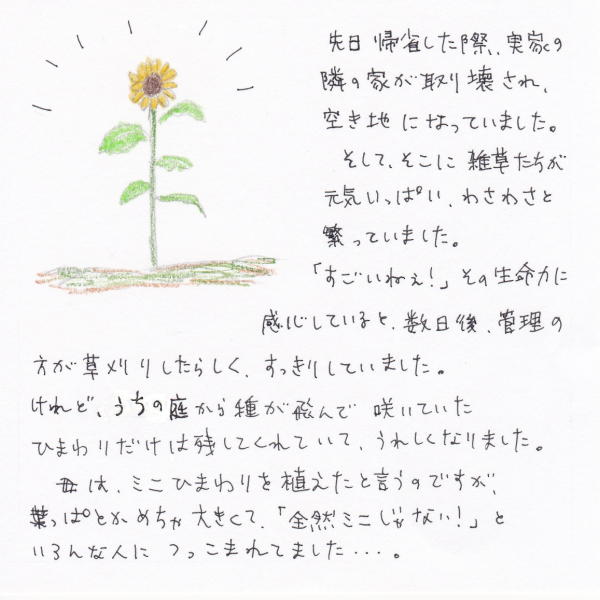 先日帰省した際、実家の
隣の家が取り壊され、
空き地になっていました。
そして、そこに雑草たちが
元気いっぱい、わさわさと
繁っていました。
「すごいねぇ!」その生命力に
感心していると、数日後、管理の
方が草刈りしたらしく、すっきりしていました。
けれど、うちの庭から種が飛んで咲いていた
ひまわりだけは残してくれていて、うれしくなりました。
母は、ミニひまわりを植えたと言うのですが、
葉っぱとかめちゃ大きくて、「全然ミニじゃない!」と
いろんな人につっこまれてました・・・。